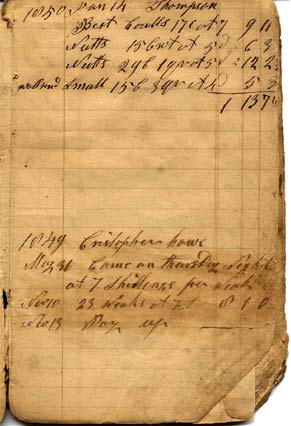 1850 Jan 14 Thompson
Best Coulls 17C at 7 9 11
Nutts 15C wt at 5d 6 3
Nutts 29C 1qr at 5d 12 2
Small 15C 3qr at 4d 5 3
1 13 7
1849 Cristopher howe
May 31 Came on thursday Night
at 7 Shillings per Weak
Nov 10 23 Weaks at 7s 8 1 0
Nov 13 Pay up